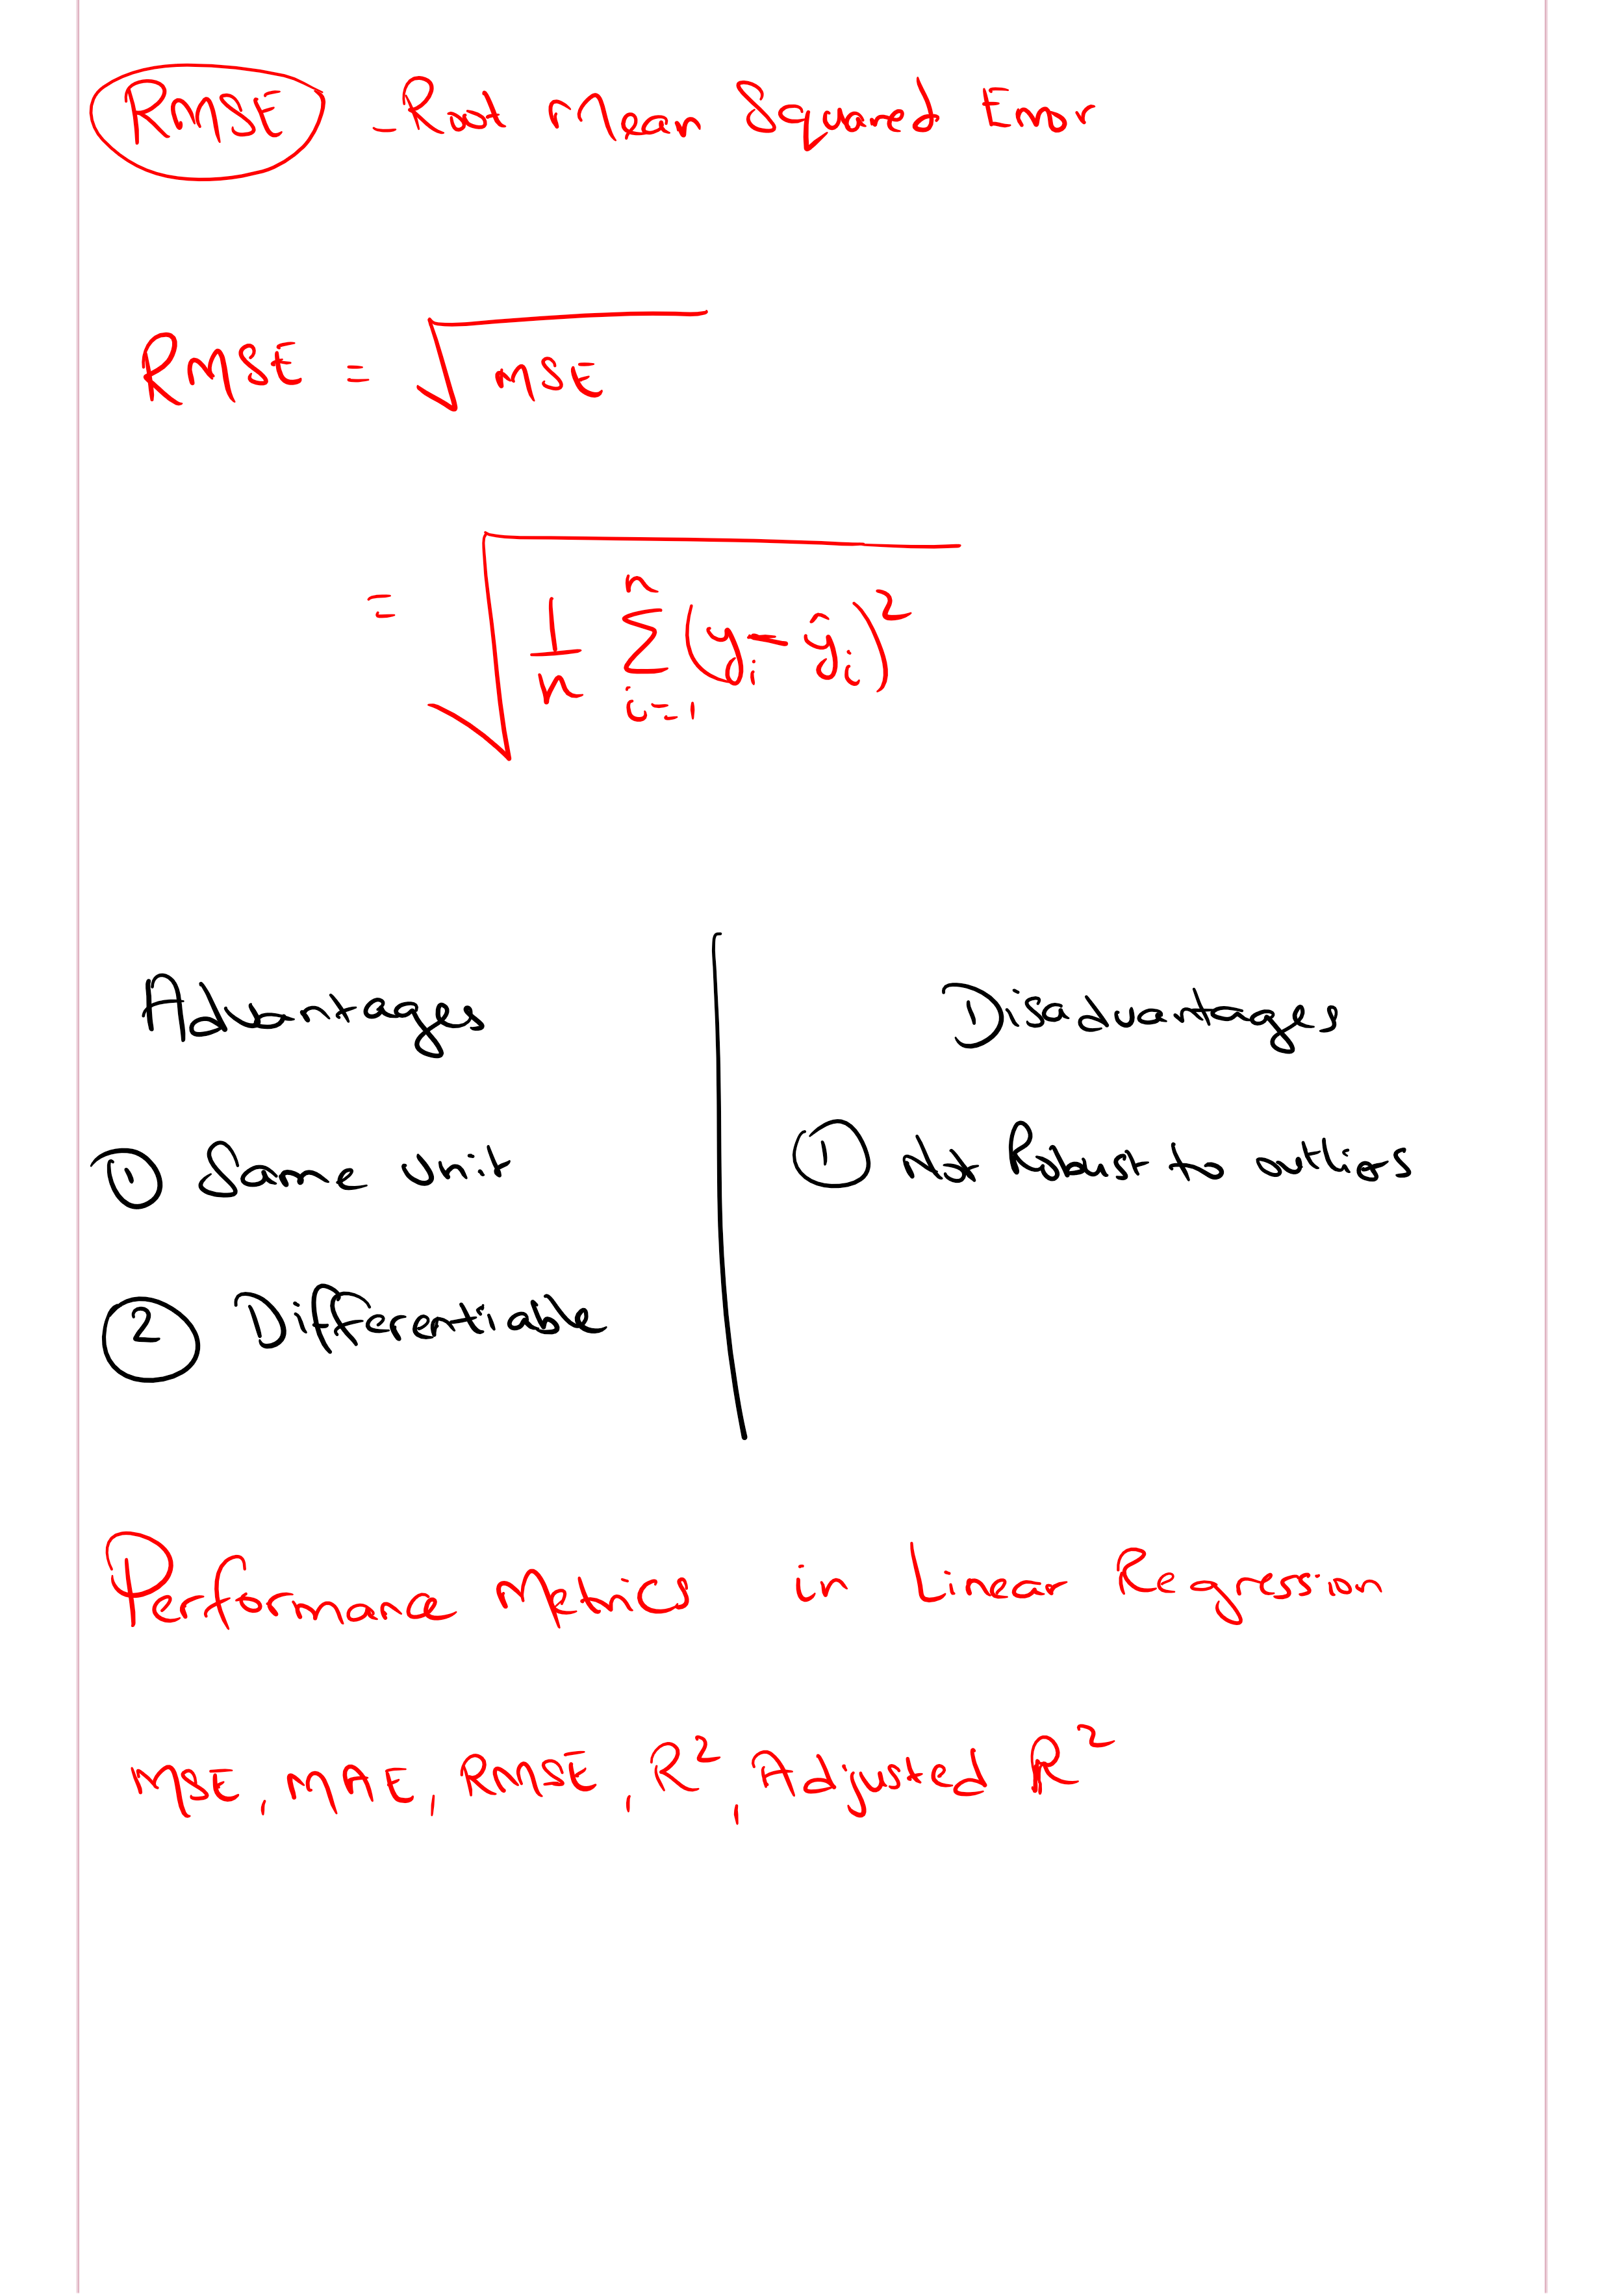 RMSE - Root Mean Squared Error
RMSE = √MSE
= √(1/n Σ_{i=1}^{n} (y_i - ŷ_i)²)
Advantages
① Same unit
② Differentiable
Disadvantages
① Not Robust to outliers
Performance Metrics in Linear Regression
MSE, MAE, RMSE, R², Adjusted R²